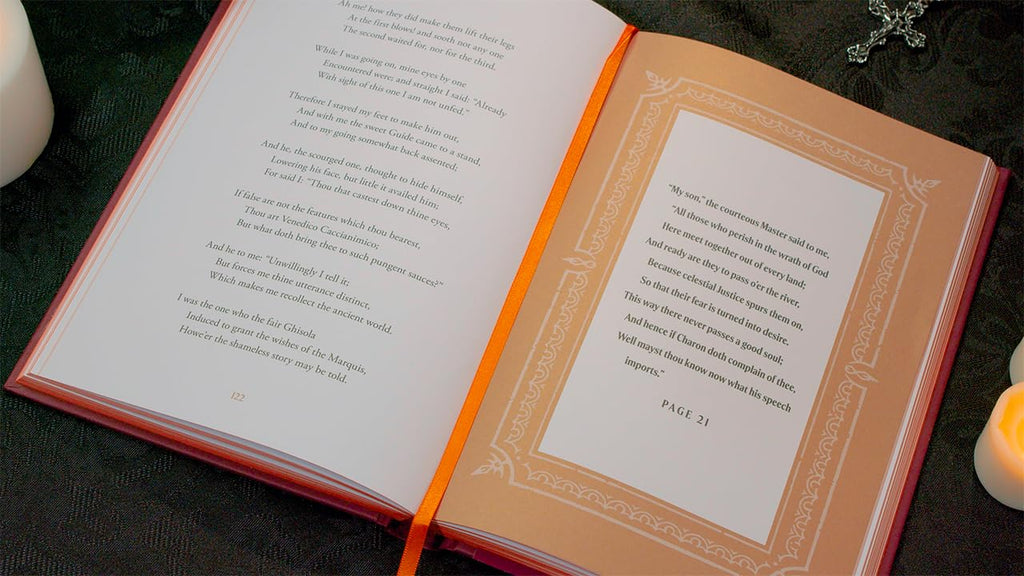 Ah me! how they did make them lift their legs
At the first blows! and sooth not any one
The second waited for, nor for the third.
While I was going on, mine eyes by one
Encountered were; and straight I said: “Already
With sight of this one I am not unfed.”
Therefore I stayed my feet to make him out,
And with me the sweet Guide came to a stand,
And to my going somewhat back assented;
And he, the scourged one, thought to hide himself,
Lowering his face, but little it availed him;
For said I: “Thou that castest down thine eyes,
If false are not the features which thou bearest,
Thou art Venedico Caccianimico;
But what doth bring thee to such pungent sauces?”
And he to me: “Unwillingly I tell it;
But forces me thine utterance distinct,
Which makes me recollect the ancient world.
I was the one who the fair Ghisola
Induced to grant the wishes of the Marquis,
Howe’er the shameless story may be told.
122
“My son,” the courteous Master said to me,
“All those who perish in the wrath of God
Here meet together out of every land;
And ready are they to pass o’er the river,
Because celestial Justice spurs them on,
So that their fear is turned into desire.
This way there never passes a good soul;
And hence if Charon doth complain of thee,
Well mayst thou know now what his speech
imports.”
PAGE 21